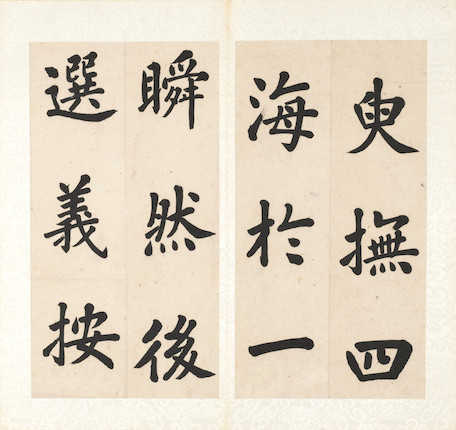 臾撫四
海於一
瞬然後
選義按